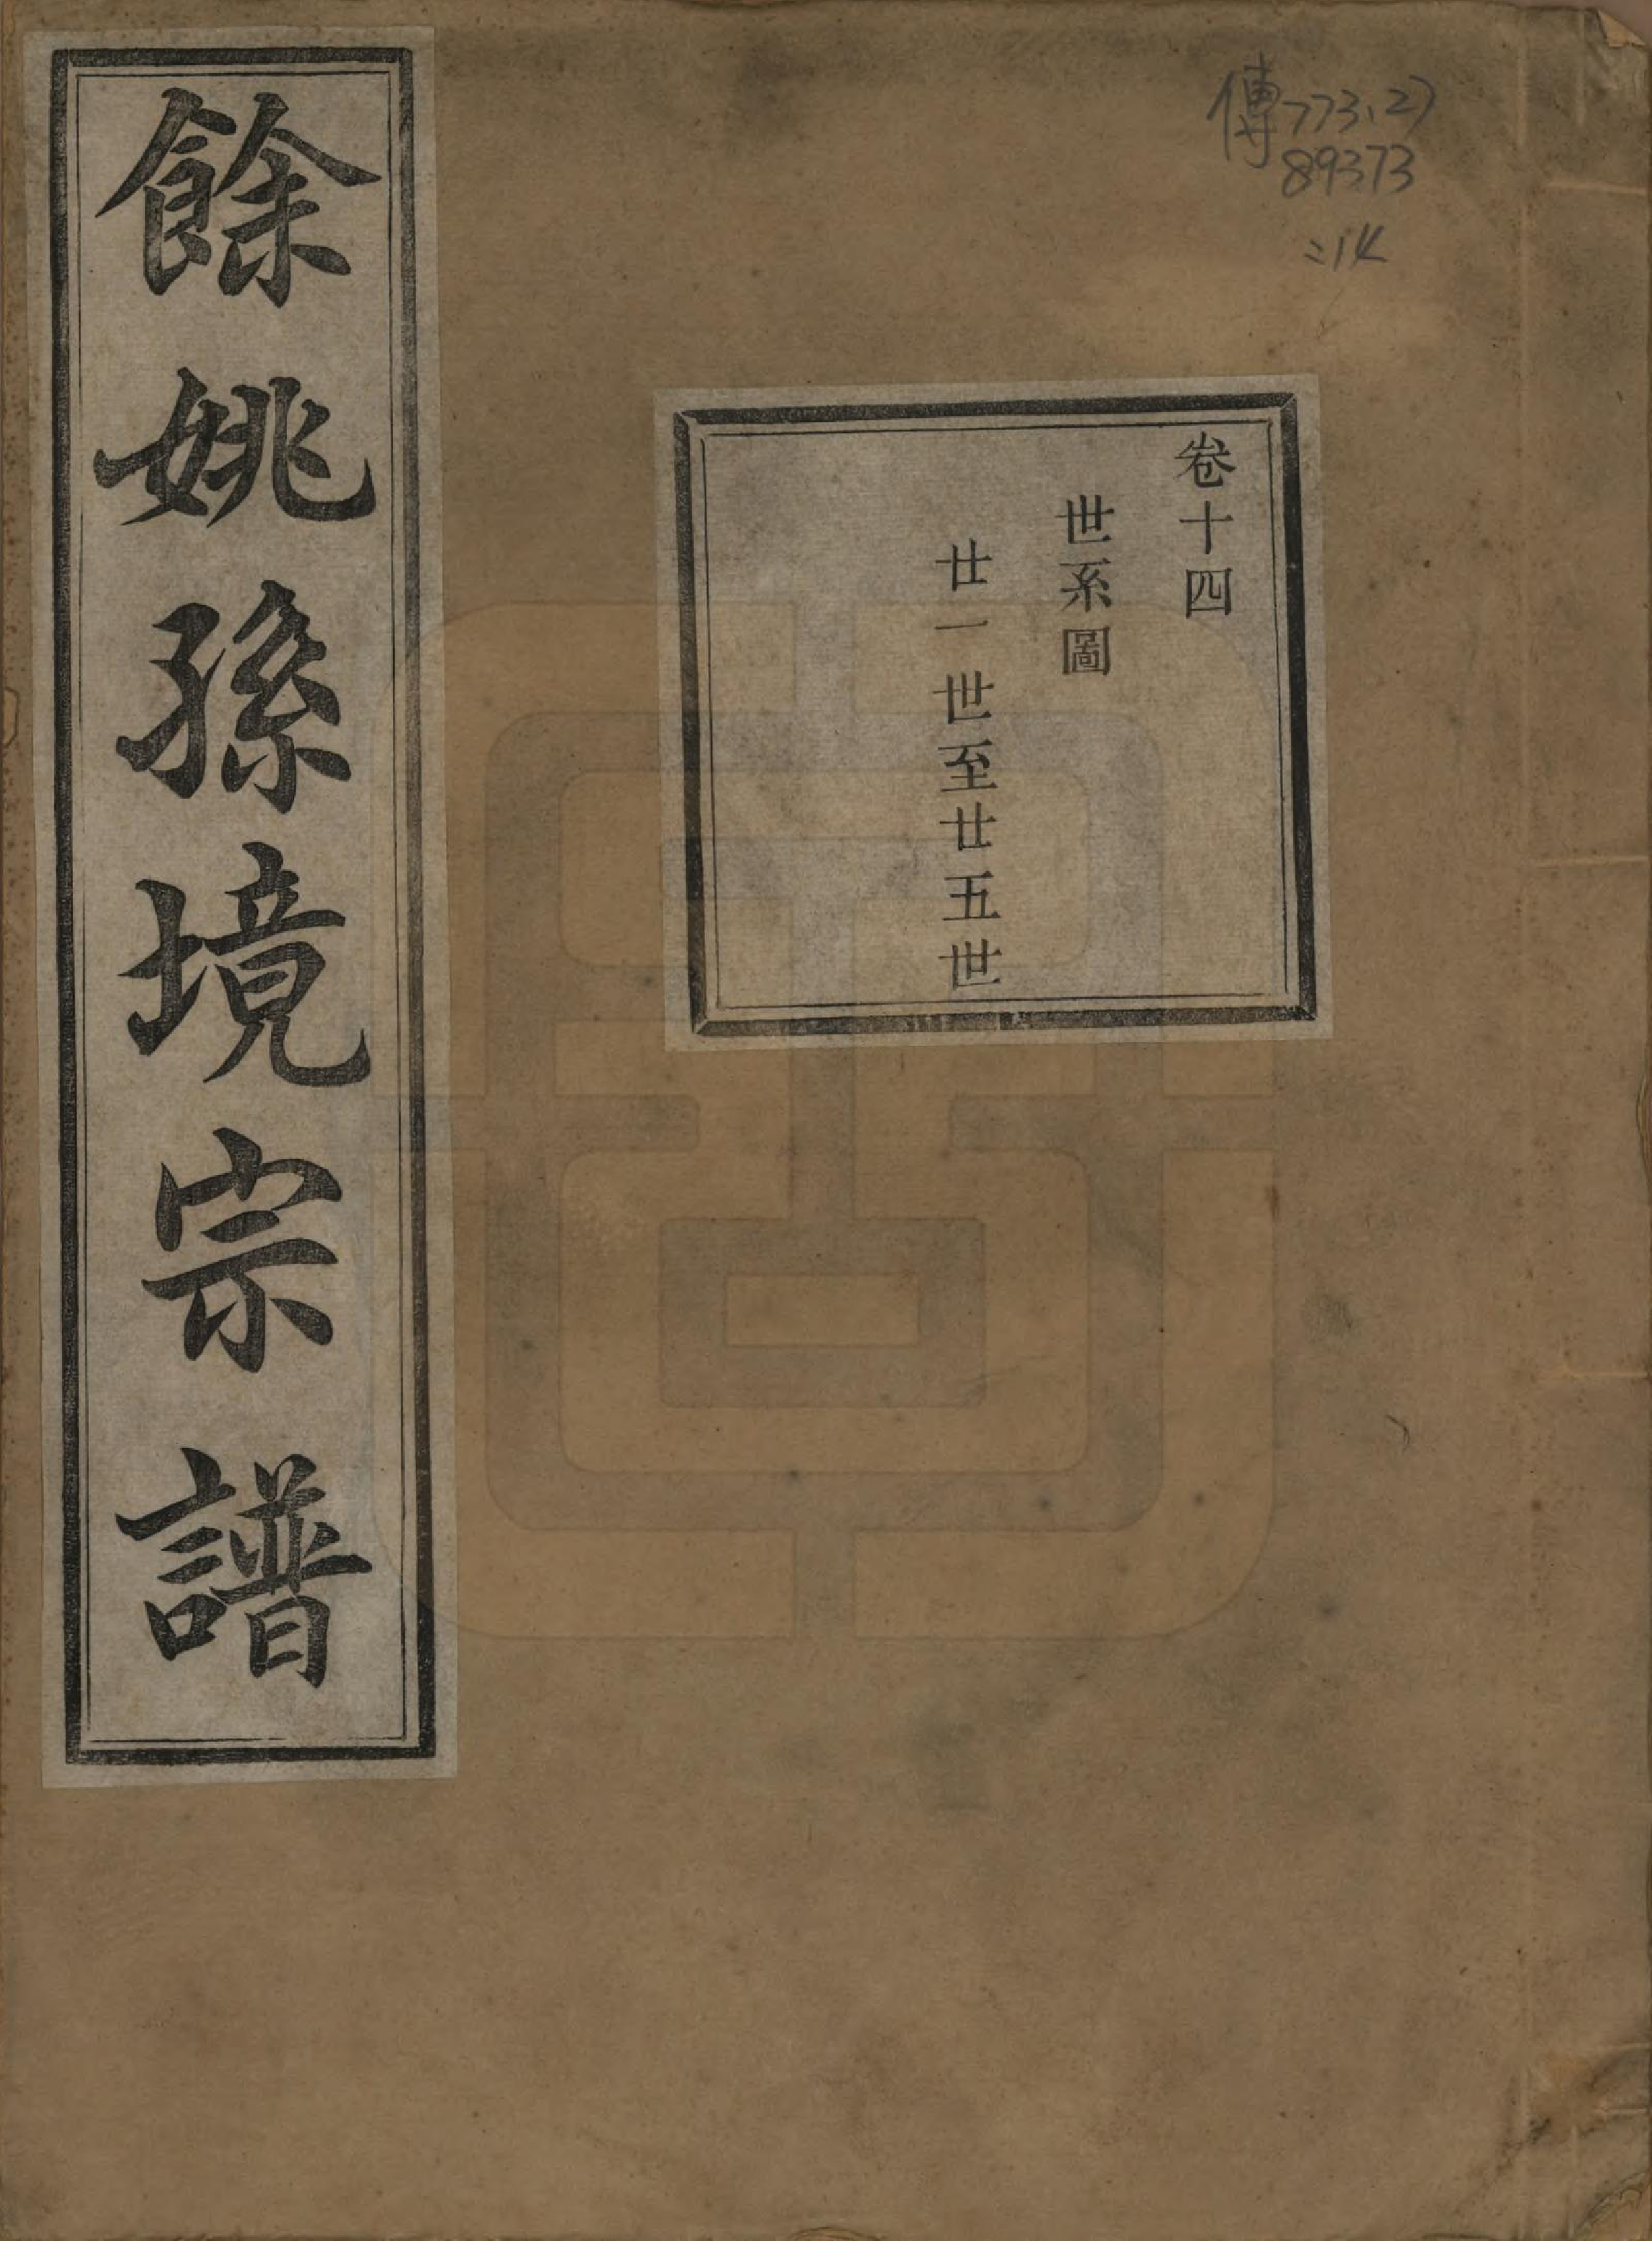 傳773.27
89373
:14
卷十四
世系圖
廿一世至廿五世
餘姚孫境宗譜